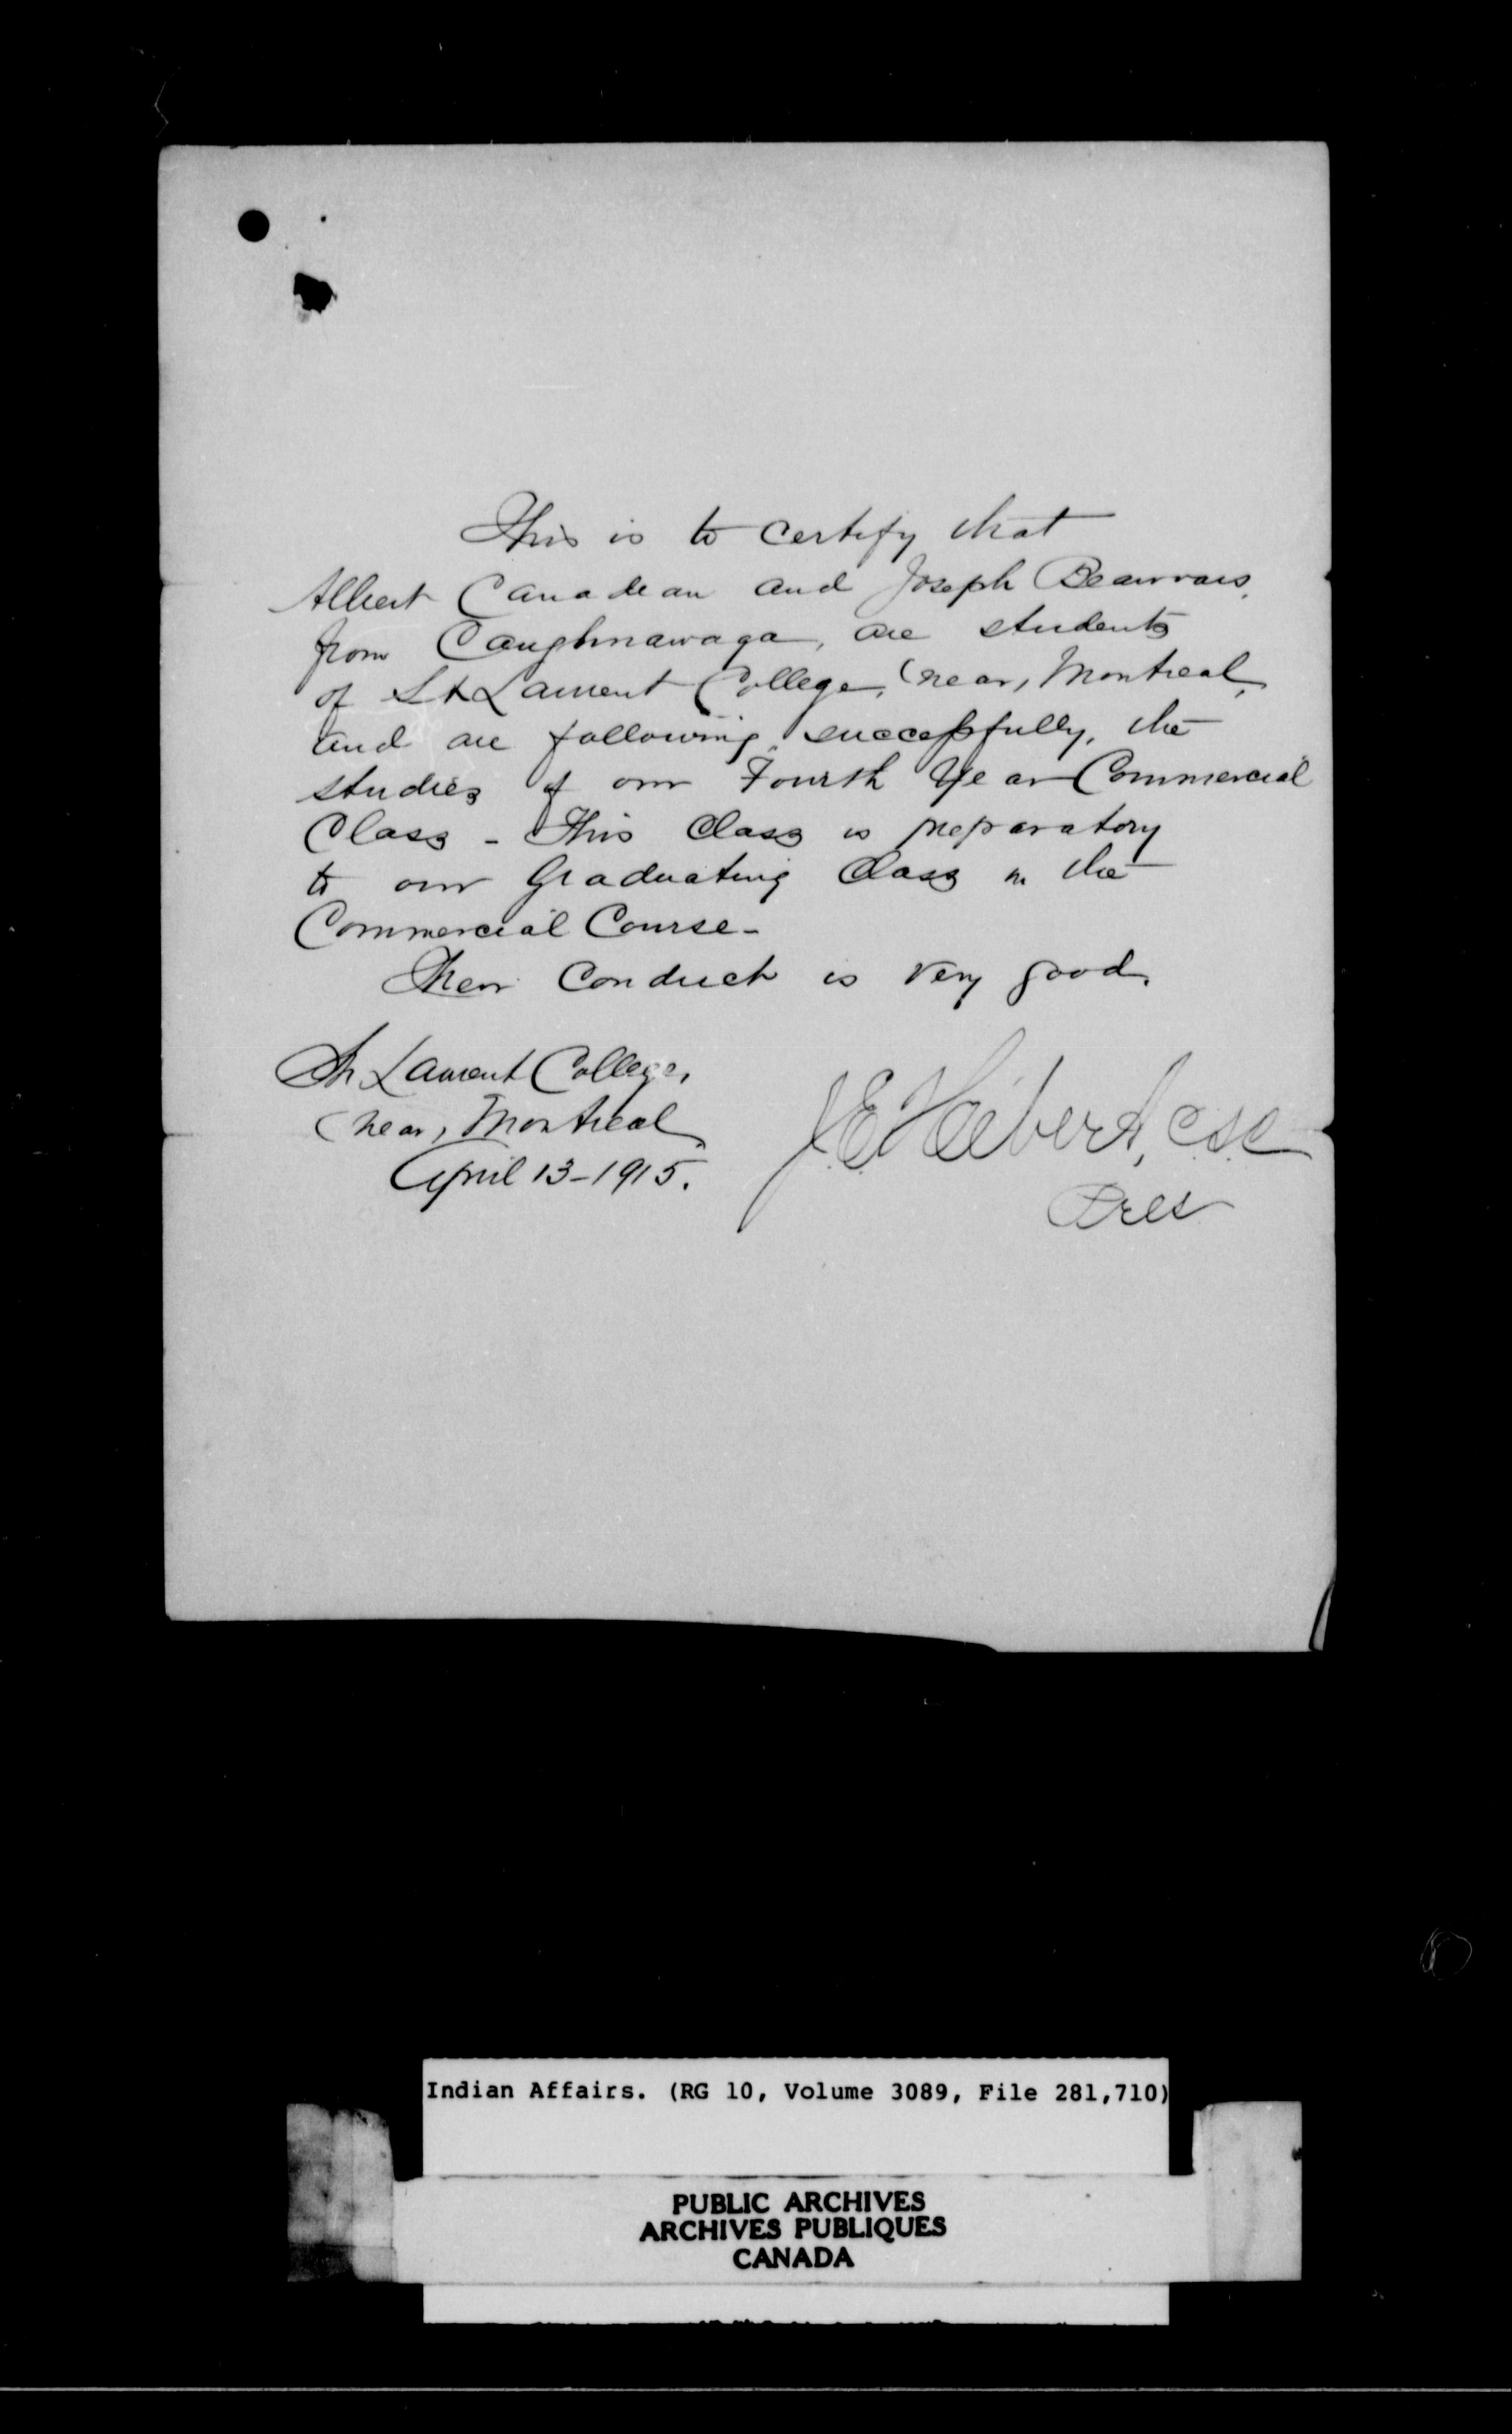 This is to certify that
Albert Canadean and Joseph Beauvais,
from Caughnawaga, are students
of St Laurent College, (near, Montreal,
and are following, successfully, the
studies of our Fourth Year Commercial
Class - This Class is preparatory
to our Graduating Class in the
Commercial Course -
Their Conduct is very good.
St. Laurent College,
(near, Montreal,
April 13 - 1915.
J.E. Hébert, c.s.c.
Pres
Indian Affairs. (RG 10, Volume 3089, File 281,710)
PUBLIC ARCHIVES
ARCHIVES PUBLIQUES
CANADA